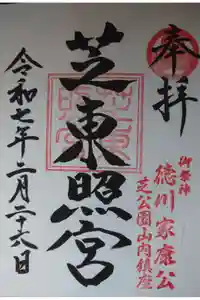 奉拝
御祭神
徳川家康公
芝公園山内鎮座
芝東照宮
令和七年二月二十六日